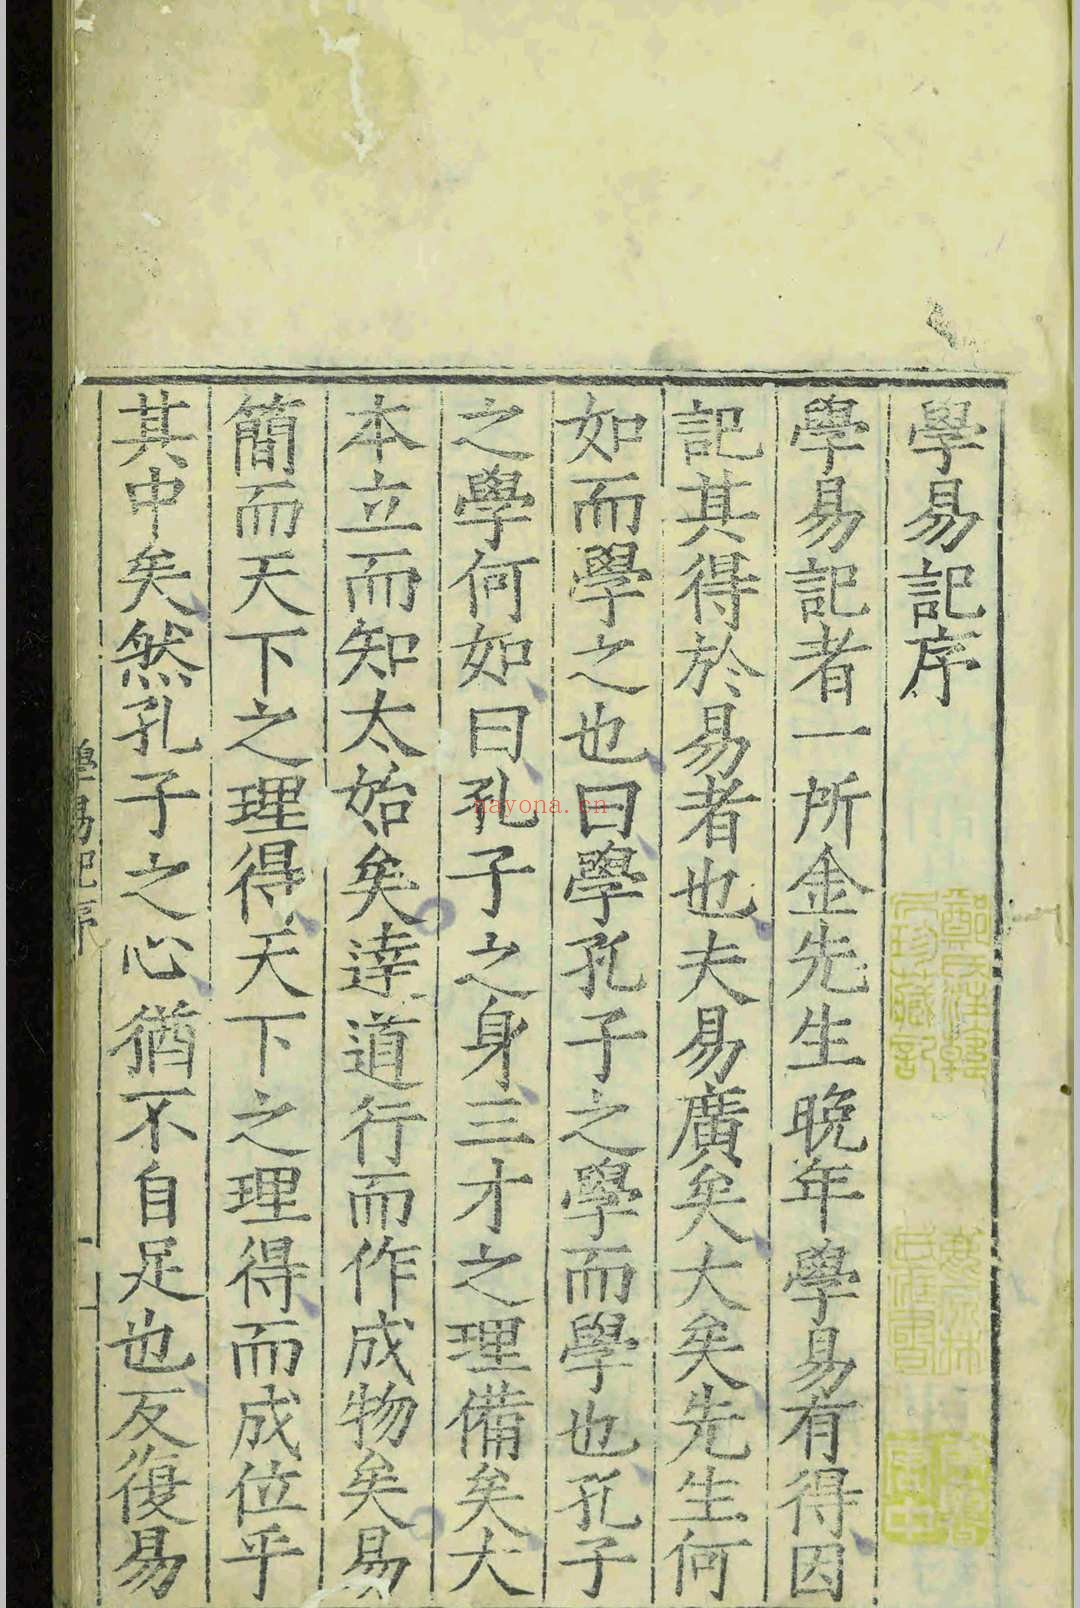 學易記序
學易記者一所金先生晚年學易有得因
記其得於易者也夫易廣矣大矣先生何
如而學之也曰學孔子之學而學也孔子
之學何如曰孔子之身三才之理備矣大
本立而知太始矣達道行而作成物矣易
簡而天下之理得天下之理得而成位乎
其中矣然孔子之心猶不自足也反復易
學易記序
nayona.cn